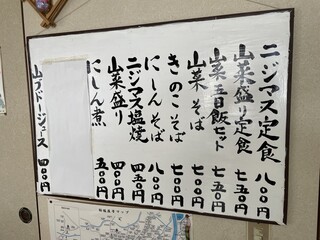 ニジマス定食 八〇〇円
山菜盛り定食 七五〇円
山菜五目飯セット 七五〇円
山菜そば 七〇〇円
きのこそば 七〇〇円
にしんそば 八〇〇円
ニジマス塩焼 四〇〇円
山菜盛り 四〇〇円
にしん煮 五〇〇円
山ブドージュース 四〇〇円